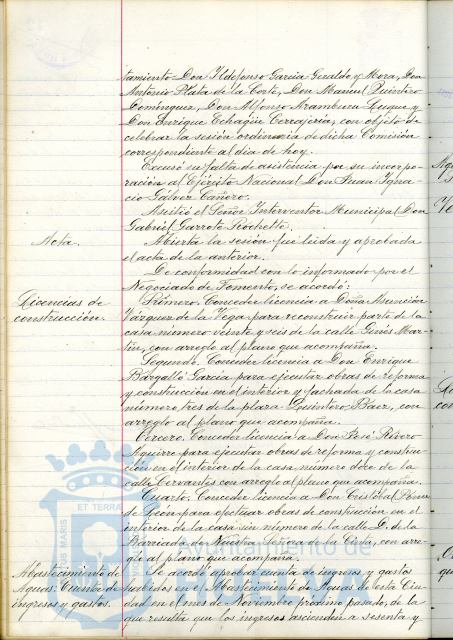 tamiento Don Ildefonso García Geraldo y Mora, Don
Antonio Plata de la Corte, Don Manuel Quintero
Domínguez, Don Alfonso Aramburu Luque y
Don Enrique Echagüe Cercajería, con objeto de
celebrar la sesión ordinaria de dicha Comisión
correspondiente al dia de hoy.
Excusó su falta de asistencia por su incorpo-
ración al Ejército Nacional Don Juan Igna-
cio Gálvez Cañero.
Asistió el Señor Interventor Municipal Don
Gabriel Garrote Rochette.
Acta.
Abierta la sesión fue leida y aprobada
el acta de la anterior.
De conformidad con lo informado por el
Negociado de Fomento, se acordó:
Licencias de
construcción.
Primero. Conceder licencia a Doña Asunción
Vázquez de la Vega para reconstruir parte de la
casa número veinte y seis de la calle Ginés Mar-
tín, con arreglo al plano que acompaña.
Segundo. Conceder licencia a Don Enrique
Bargalló García para ejecutar obras de reforma
y construcción en el interior y fachada de la casa
número tres de la plaza Quintero Baez, con
arreglo al plano que acompaña.
Tercero. Conceder licencia a Don José Rivero
Aguirre para ejecutar obras de reforma y construc-
ción en el interior de la casa número doce de la
calle Cervantes con arreglo al plano que acompaña.
Cuarto. Conceder licencia a Don Cristóbal
para efectuar obras de construcción en el
interior de la casa sin número de la calle D. de la
Barriada de Nuestra Señora de la Cinta, con arre-
glo al plano que acompaña.
Abastecimiento de
Aguas. Cuenta de
ingresos y gastos.
Se acordó aprobar cuenta de ingresos y gastos
habidos en el Abastecimiento de Aguas de esta Ciu-
dad en el mes de Noviembre próximo pasado, de la
que resulta que los ingresos ascienden a sesenta y
ET TERRA
US MARIS
Ayuntamiento de
HUELVA